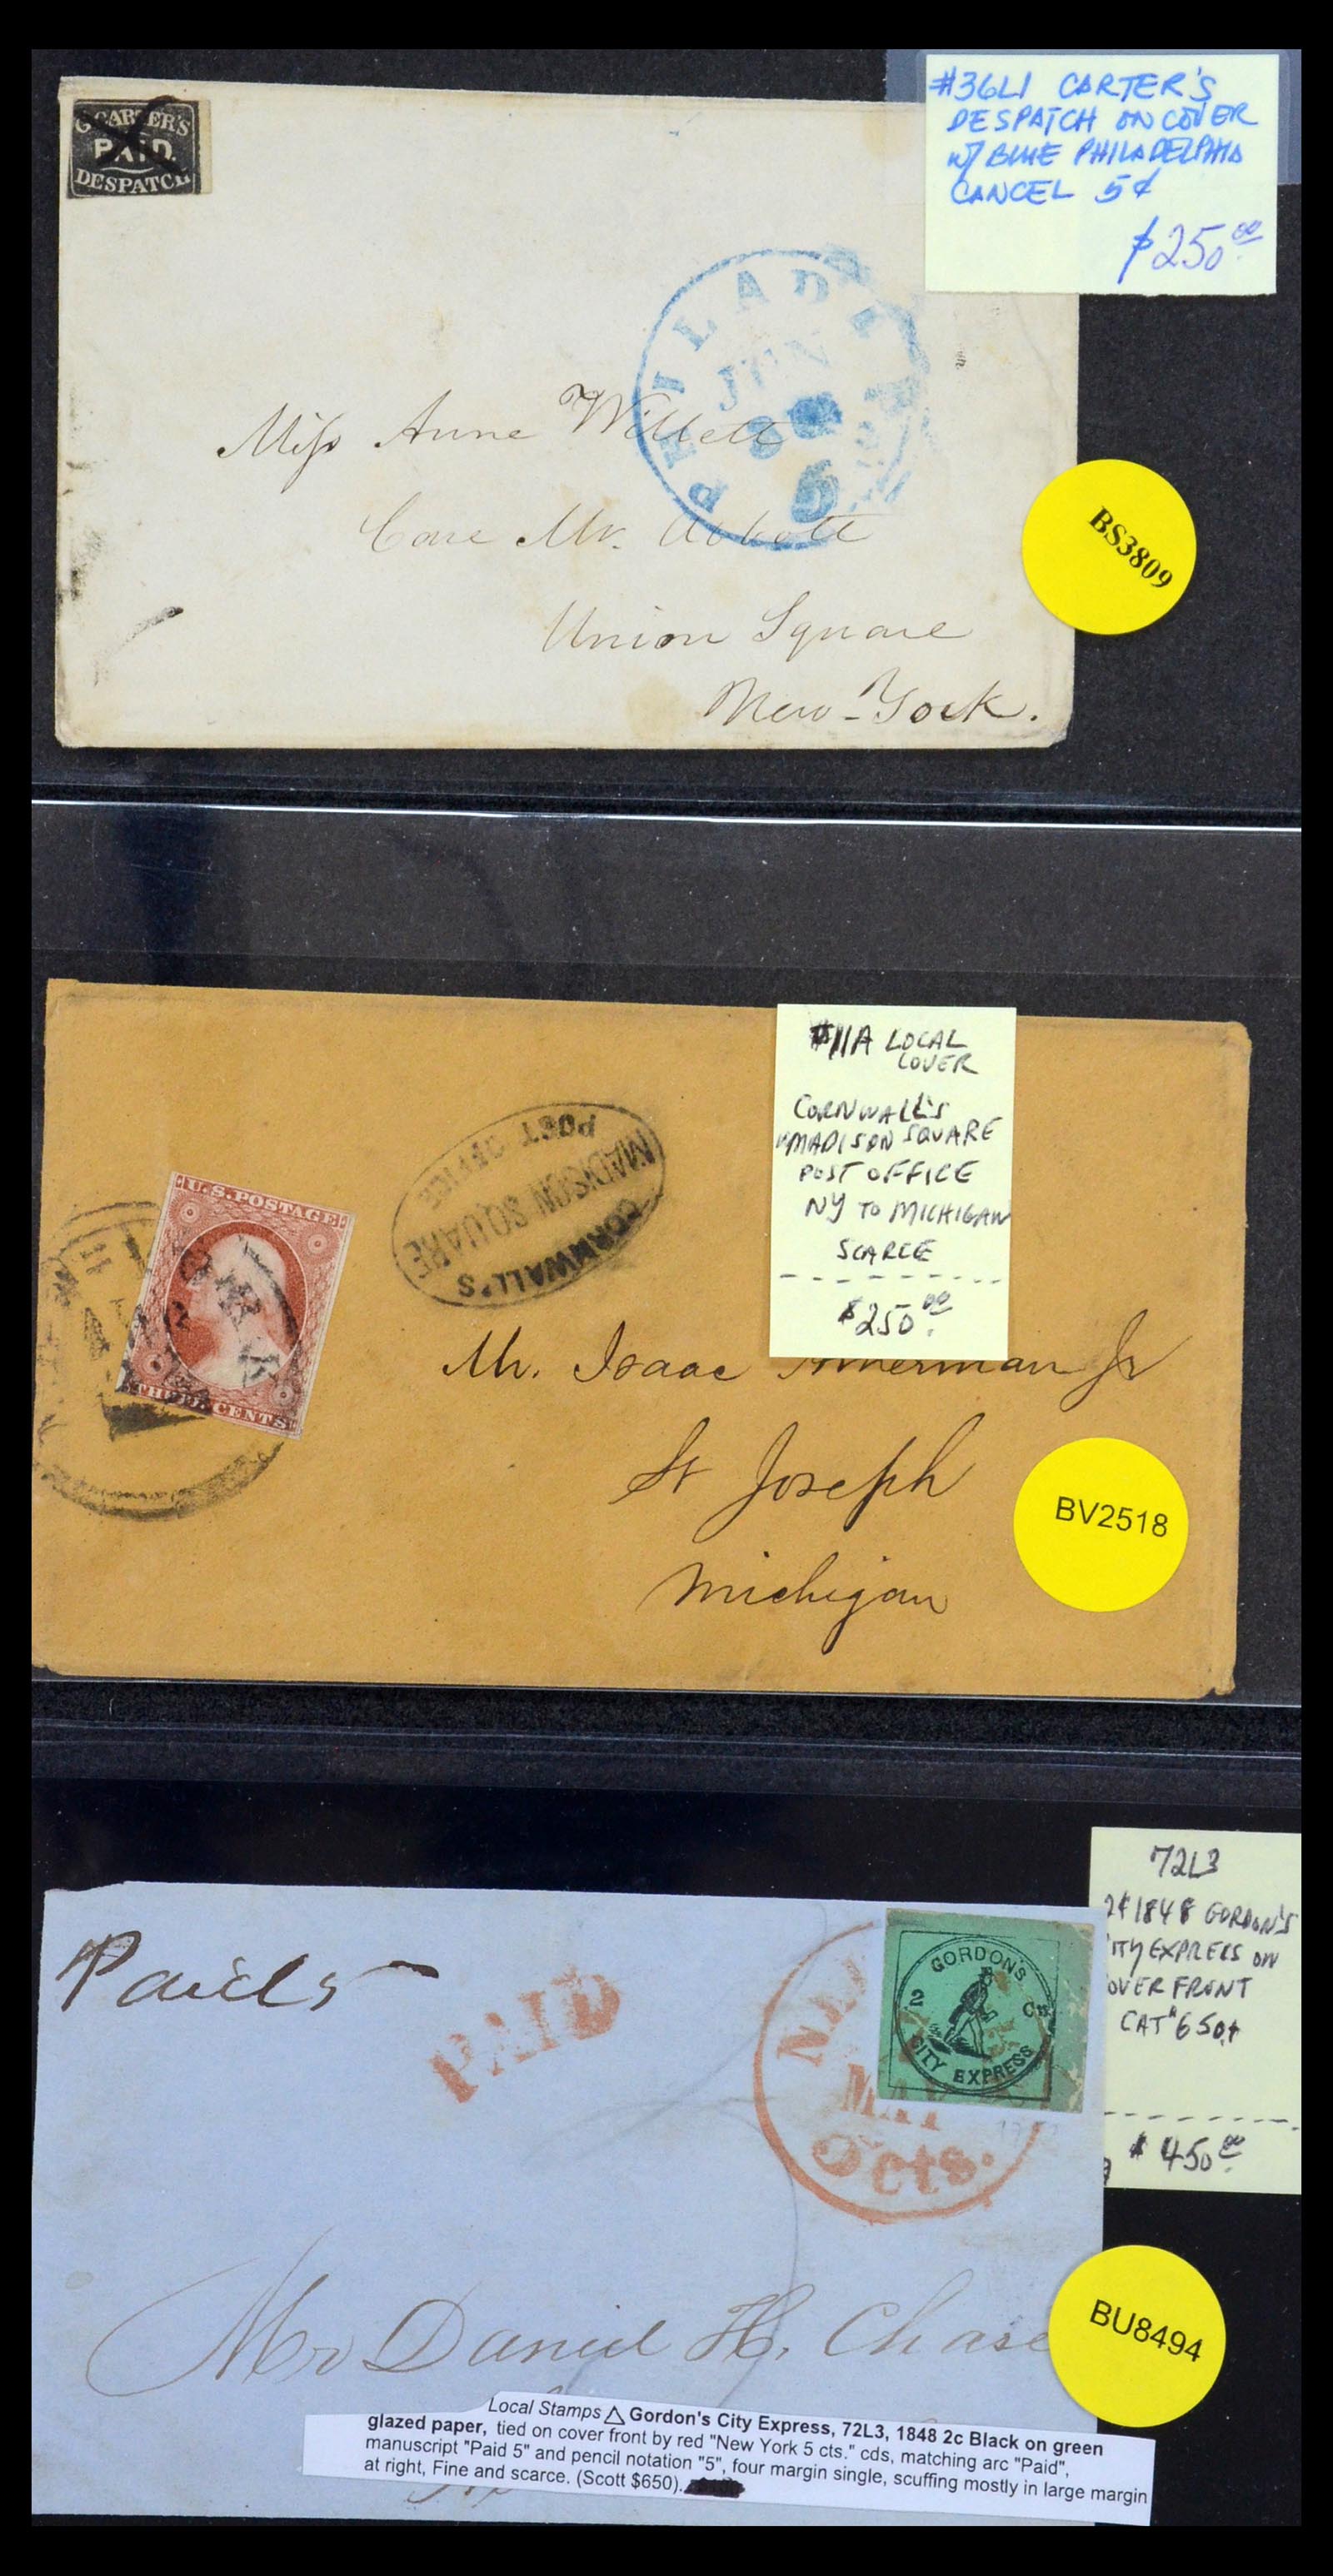 G. CARTER'S
PAID.
DESPATCH
#36L1 CARTER'S
DESPATCH ON COVER
W/ BLUE PHILADELPHIA
CANCEL 5¢
$250.00
PHILADE
JUN
5
Miss Anne Willett
Care Mr. Abbott
Union Square
New-York.
BS3809
#11A LOCAL
COVER
CORNWALL'S
"MADISON SQUARE
POST OFFICE
NY TO MICHIGAN
SCARCE
$250.00
CORNWALL'S
MADISON SQUARE
POST OFFICE
U.S. POSTAGE
THREE CENTS
Mr. Isaac Amerman Jr
St Joseph
Michigan
BV2518
72L3
2¢ 1848 GORDON'S
CITY EXPRESS ON
COVER FRONT
CAT $650+
$450.00
Paid 5
PAID
NEW
MAY
5 cts.
GORDON'S
2 Cts
CITY EXPRESS
Mr Daniel H. Chase
BU8494
Local Stamps △ Gordon's City Express, 72L3, 1848 2c Black on green
glazed paper, tied on cover front by red "New York 5 cts." cds, matching arc "Paid",
manuscript "Paid 5" and pencil notation "5", four margin single, scuffing mostly in large margin
at right, Fine and scarce. (Scott $650).